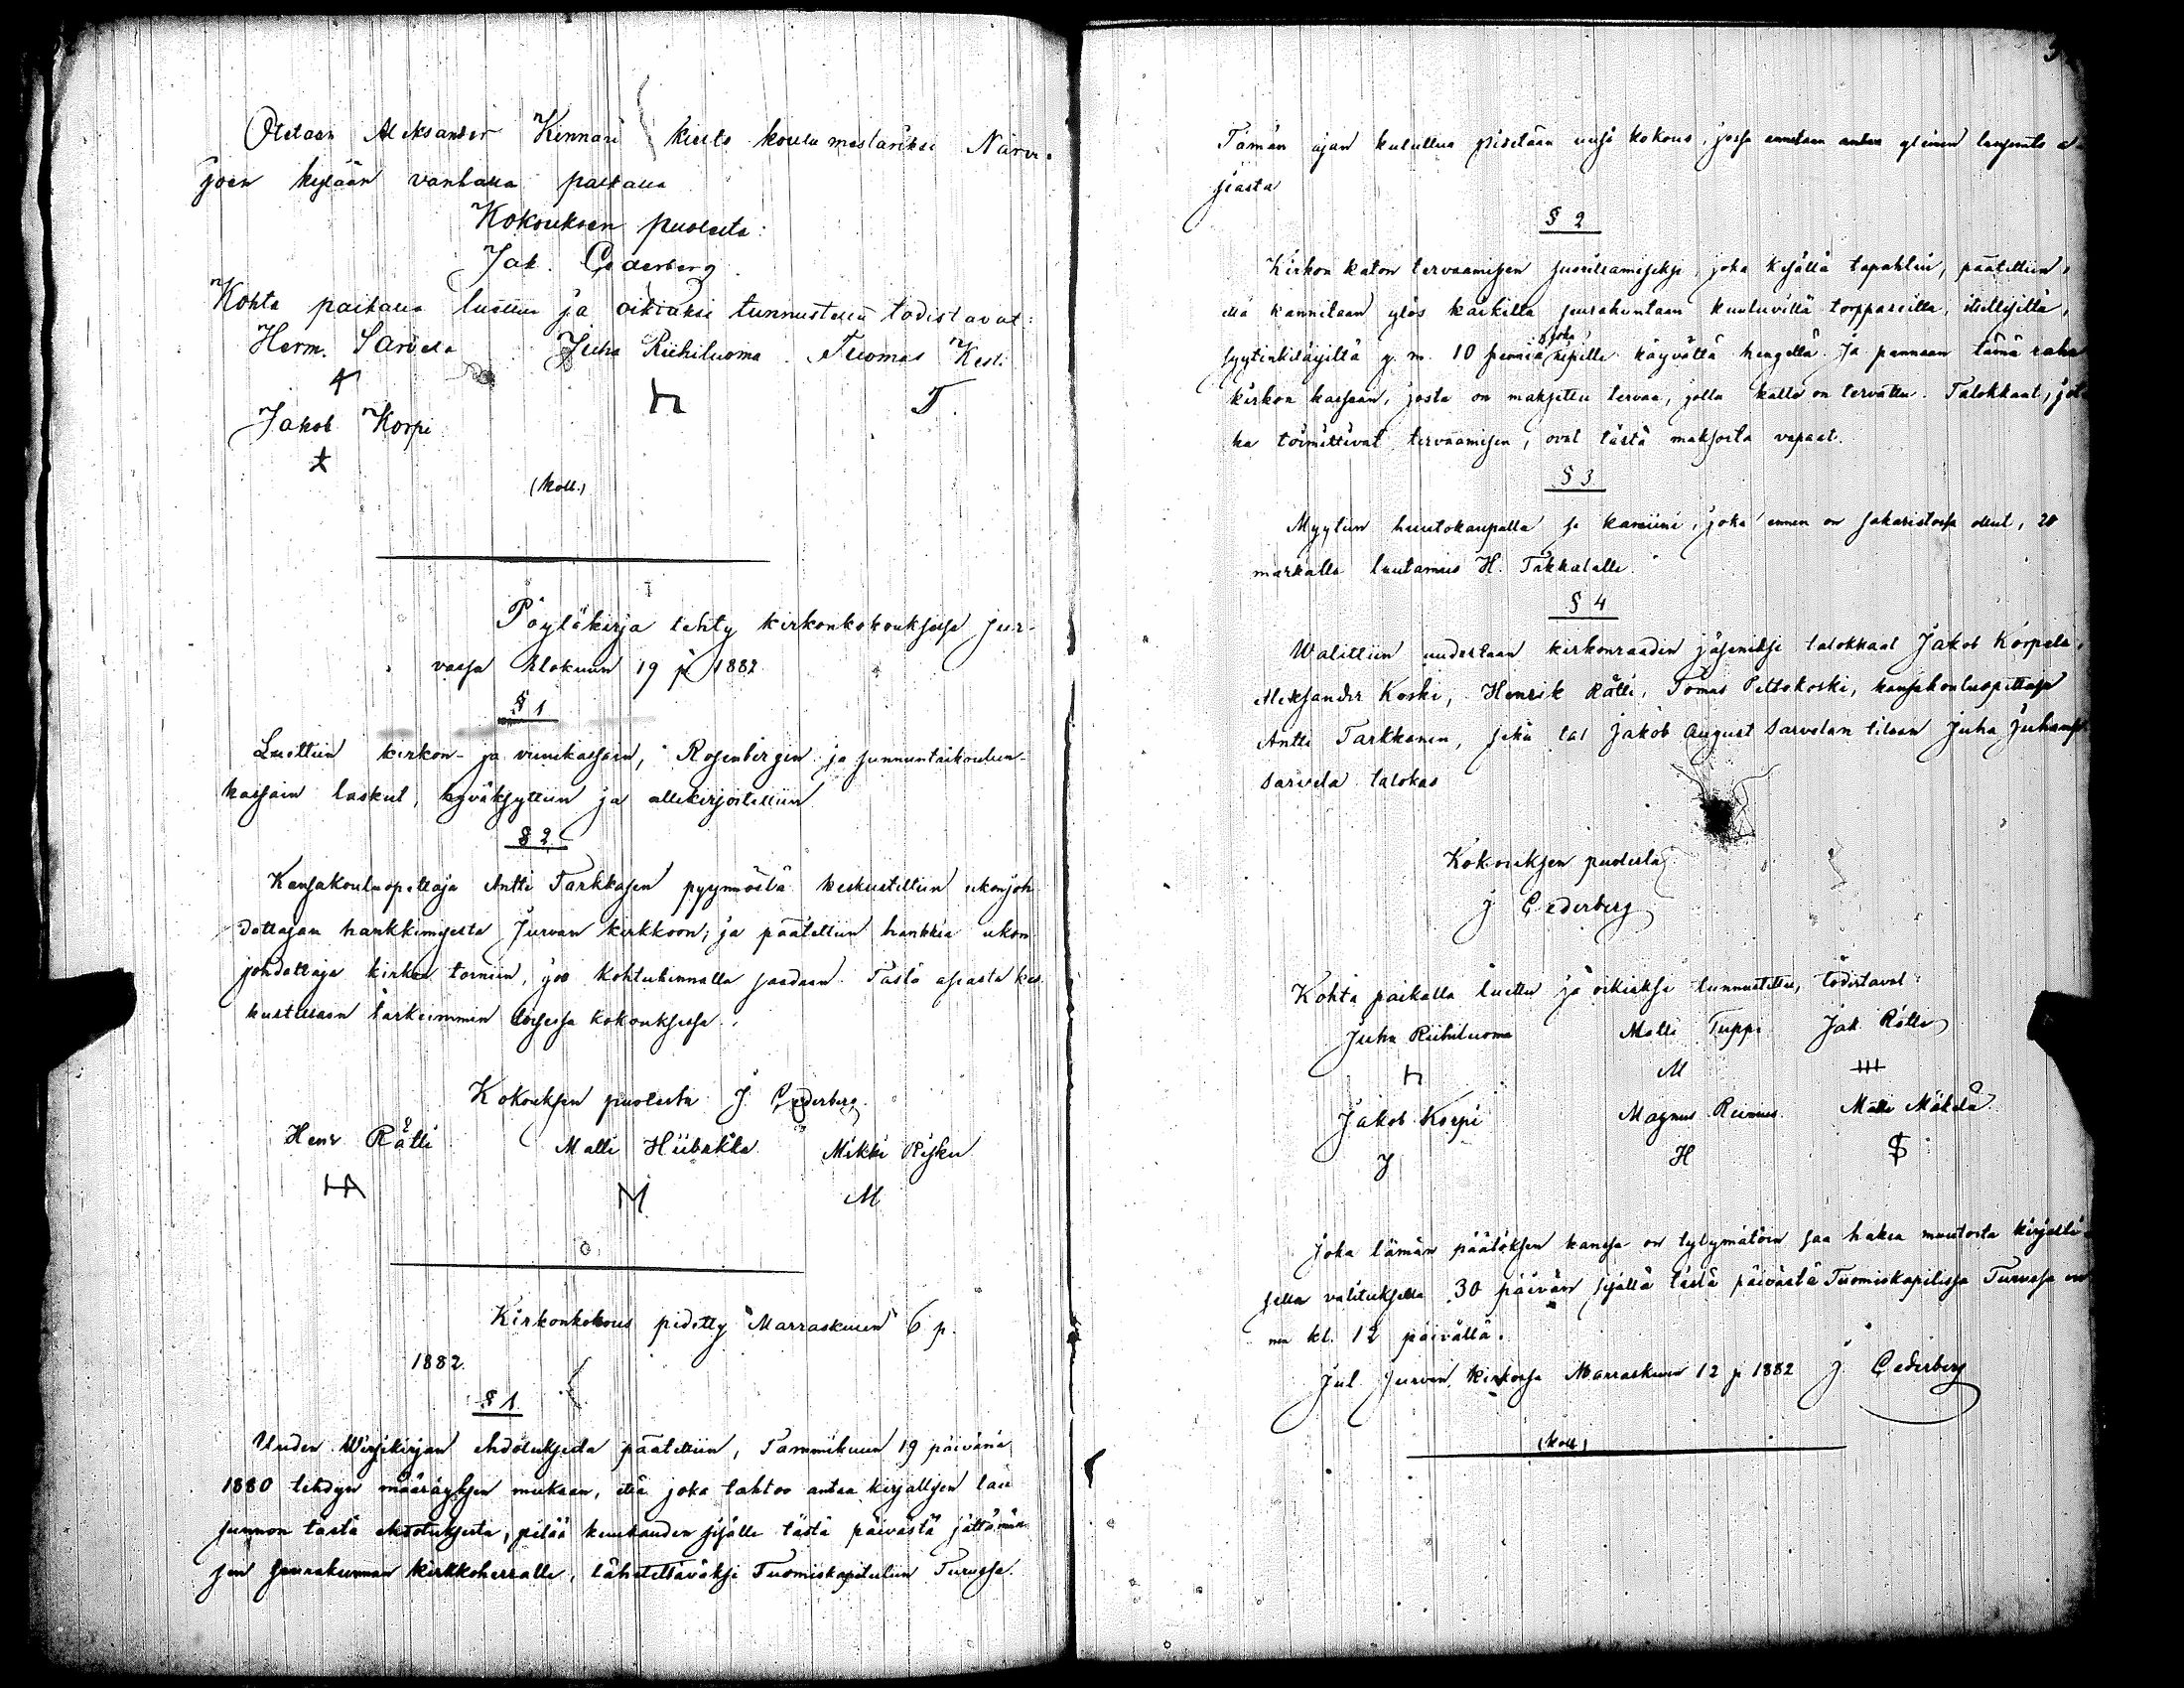 Otetaan Aleksander Kinnari kierto koulumestariksi Närvi-
joen kylään vanhalla palkalla
Kokouksen puolesta:
Jak. Cederberg.
Kohta paikalla luettu ja oikiaksi tunnustettu todistavat:
Herm. Sarvela Juha Riihiluoma Tuomas Kesti
T.
Jakob Korpi
(Koll.)
Pöytäkirja tehty kirkonkokouksessa Jur-
vassa Elokuun 19 p 1882
§ 1
Luettiin kirkon- ja viinikassan, Rosenbergin ja sunnuntaikoulun-
kassain laskut, hyväksyttiin ja allekirjoitettiin
§ 2.
Kansakouluopettaja Antti Tarkkasen pyynnöstä keskusteltiin ukonjoh
dattajan hankkimisesta Jurvan kirkkoon; ja päätettiin hankkia ukon
johdattaja kirkon torniin, jos kohtuhinnalla saadaan. Tästä asiasta kes
kustellaan tarkemmin toisessa kokouksessa.
Kokouksen puolesta J. Cederberg.
Henr Rätti Matti Hiibakka Mikki Risku
M M
Kirkonkokous pidetty Marraskuun 6 p.
1882.
§ 1.
Uuden Wirsikirjan ehdotuksesta päätettiin, Tammikuun 19 päivänä
1880 tehdyn määräyksen mukaan, että joka tahtoo antaa kirjallisen lau
sunnon tästä ehdotuksesta, pitää kuukauden sisälle tästä päivästä jättämän
sen seurakunnan kirkkoherralle, lähetettäväksi Tuomiokapituliin Turussa.
Tämän ajan kuluttua pidetään uusi kokous, jossa annetaan yleinen lausunto a
siasta
§ 2
Kirkon katon tervaamisen suorittamiseksi, joka kesällä tapahtui, päätettiin,
että kannetaan ylös kaikilta seurakuntaan kuuluvilta torppareilta, itsellisiltä,
syytinkiläisiltä y. m. 10 penniä joka ripille käyvältä hengeltä. Ja pannaan tämä raha
kirkon kassaan, josta on maksettu tervaa, jolla katto on tervattu. Talokkaat, jot
ka toimittivat tervaamisen, ovat tästä maksosta vapaat.
§ 3
Myytiin huutokaupalla se kamiini, joka ennen on sakaristossa ollut, 20
markalla lautamies H. Takkalalle.
§ 4
Walittiin uudestaan kirkonraadin jäseniksi talokkaat Jakob Korpela,
Aleksander Koski, Henrik Rätti, Tomas Peltokoski, kansakouluopettaja
Antti Tarkkanen, sekä tal Jakob August Sarvelan tilaan Juha Juhanp.
Sarvela talokas
Kokouksen puolesta
J Cederberg
Kohta paikalla luettu ja oikiaksi tunnustettu, todistavat:
Juha Riihiluoma Matti Tuppi Jak. Rätti
M
Jakob Korpi Magnus Rinnus Matti Mäkelä.
J H $
Joka tämän päätöksen kanssa on tytymätöin saa hakea muutosta kirjalli-
sella valituksella 30 päivän sisällä tästä päivästä Tuomiokapitlissa Turussa en
nen kl. 12 päivällä.
Jul. Jurvan kirkossa Marraskuun 12 p 1882 J. Cederberg
(Koll.)